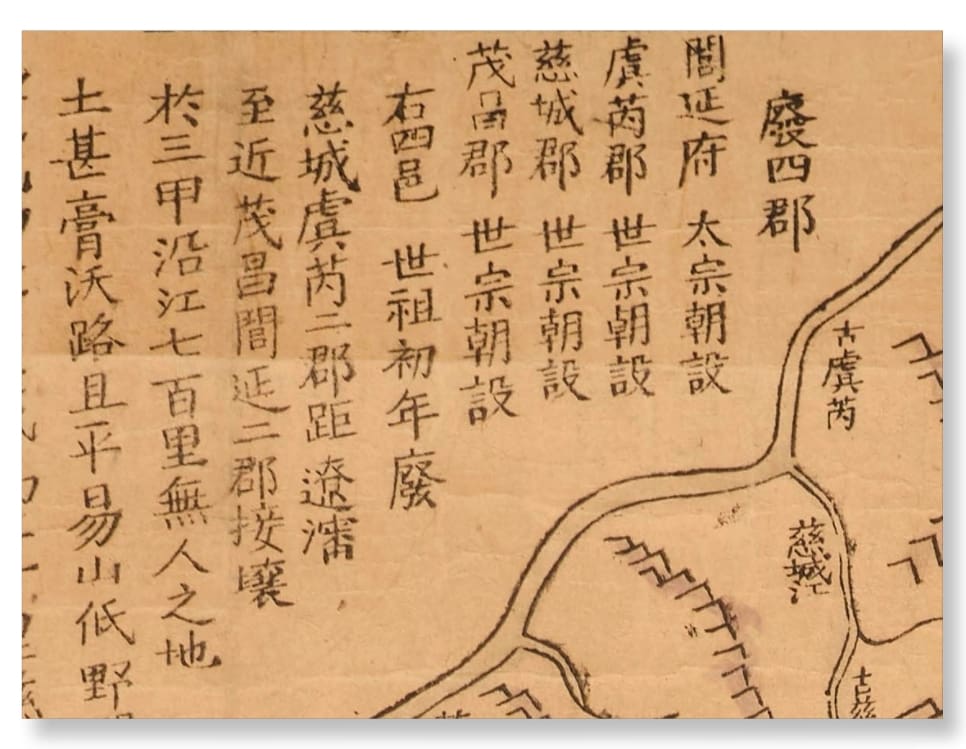 廢四郡
閭延府 太宗朝設
虞芮郡 世宗朝設
慈城郡 世宗朝設
茂昌郡 世宗朝設
右四邑 世祖初年廢
慈城虞芮二郡距遼瀋
至近茂昌閭延二郡接壤
於三甲沿江七百里無人之地
土甚膏沃路且平易山低野
古虞芮
慈城江
古慈